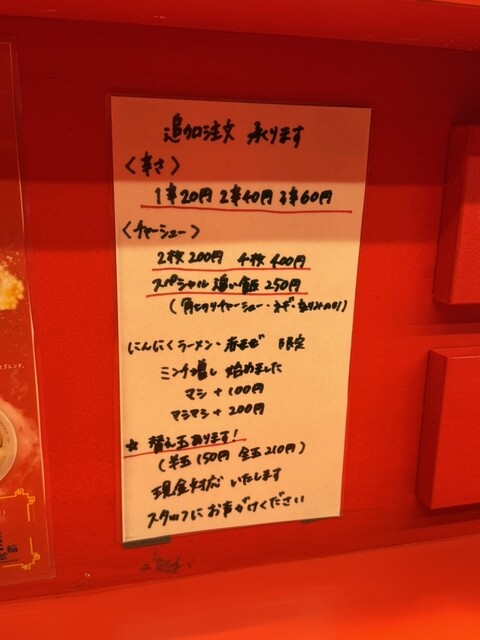 追加注文 承ります
〈辛さ〉
1辛20円 2辛40円 3辛60円
〈チャーシュー〉
2枚200円 4枚400円
スペシャル追い飯 250円
(角切りチャーシュー・ネギ・きざみのり)
にんにくラーメン・まぜそば 限定
ミンチ増し 始めました
マシ +100円
マシマシ +200円
☆ 替え玉あります!
(半玉150円 全玉210円)
現金対応いたします
スタッフにお声がけください